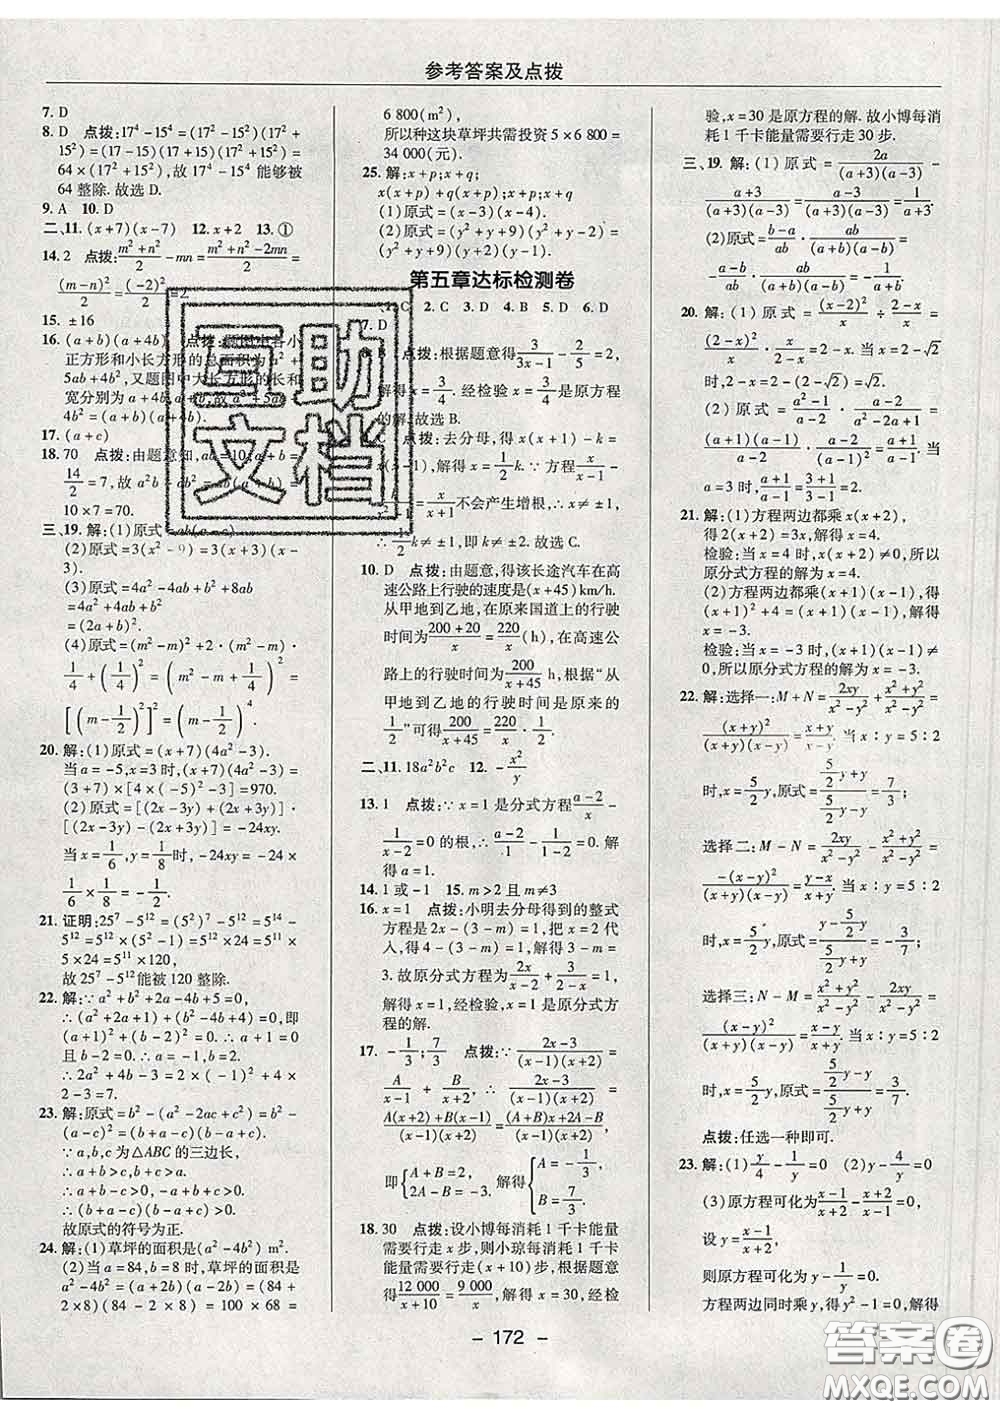 参考答案及点拨
7. D
8. D 点拨：17⁴－15⁴＝(17²－15²)(17²＋
15²)＝(17－15)(17＋15)(17²＋15²)＝
64×(17²＋15²)，故 17⁴－15⁴ 能够被
64 整除. 故选 D.
9. A 10. D
二、11. (x＋7)(x－7) 12. x＋2 13. ①
14. 2 点拨：(m²＋n²)/2－mn＝(m²＋n²－2mn)/2＝
(m－n)²/2＝(－2)²/2＝2.
15. ±16
16. (a＋b)(a＋4b) 点拨：
正方形和小长方形的总面积为 a²＋
5ab＋4b²，又题图中大长方形的长和
宽分别为 a＋4b，a＋b，故 a²＋5ab＋
4b²＝(a＋b)(a＋4b).
17. (a＋c)
18. 70 点拨：由题意知，ab＝10，a＋b＝
14/2＝7，故 a²b＋ab²＝
10×7＝70.
三、19. 解：(1)原式＝ab(a－c).
(2)原式＝3(x²－9)＝3(x＋3)(x－
3).
(3)原式＝4a²－4ab＋b²＋8ab
＝4a²＋4ab＋b²
＝(2a＋b)².
(4)原式＝(m²－m)²＋2·(m²－m)·
1/4＋(1/4)²＝(m²－m＋1/4)²＝
[(m－1/2)²]²＝(m－1/2)⁴.
20. 解：(1)原式＝(x＋7)(4a²－3).
当 a＝－5，x＝3 时，(x＋7)(4a²－3)＝
(3＋7)×[4×(－5)²－3]＝970.
(2)原式＝[(2x－3y)＋(2x＋3y)]·
[(2x－3y)－(2x＋3y)]＝－24xy.
当 x＝1/6，y＝1/8时，－24xy＝－24×
1/6×1/8＝－1/2.
21. 证明：25⁷－5¹²＝(5²)⁷－5¹²＝5¹⁴－
5¹²＝5¹²×(5²－1)＝5¹²×24＝5¹¹×
5×24＝5¹¹×120，
故 25⁷－5¹²能被 120 整除.
22. 解：∵a²＋b²＋2a－4b＋5＝0，
∴(a²＋2a＋1)＋(b²－4b＋4)＝0，即
(a＋1)²＋(b－2)²＝0. ∴a＋1＝0
且 b－2＝0. ∴a＝－1，b＝2.
∴2a²＋4b－3＝2×(－1)²＋4×
2－3＝7.
23. 解：原式＝b²－(a²－2ac＋c²)＝
b²－(a－c)²＝(b＋a－c)(b－a＋c).
∵a，b，c 为△ABC 的三边长，
∴a＋b＞c，b＋c＞a.
∴a＋b－c＞0，－a＋b＋c＞0.
故原式的符号为正.
24. 解：(1)草坪的面积是(a²－4b²) m².
(2)当 a＝84，b＝8 时，草坪的面积是
a²－4b²＝(a＋2b)(a－2b)＝(84＋
2×8)(84－2×8)＝100×68＝
6 800(m²)，
所以种这块草坪共需投资 5×6 800＝
34 000(元).
25. 解：x＋p；x＋q；
x(x＋p)＋q(x＋p)；(x＋p)(x＋q)
(1)原式＝(x－3)(x－4).
(2)原式＝(y²＋y＋9)(y²＋y－2)＝
(y²＋y＋9)(y＋2)(y－1).
第五章达标检测卷
C 2. C 3. D 4. B 5. D 6. D
7. D
B 点拨：根据题意得3/(3x－1)－2/5＝2，
解得 x＝3/4. 经检验 x＝3/4是原方程
的解. 故选 B.
C 点拨：去分母，得 x(x＋1)－k＝
x(x－1)，解得 x＝1/2 k. ∵方程x/(x－1)－
＝x/(x＋1)不会产生增根，∴x≠±1，
∴1/2 k≠±1，即 k≠±2. 故选 C.
10. D 点拨：由题意，得该长途汽车在高
速公路上行驶的速度是(x＋45)km/h.
从甲地到乙地，在原来国道上的行驶
时间为(200＋20)/x＝220/x(h)，在高速公
路上的行驶时间为200/(x＋45) h，根据“从
甲地到乙地的行驶时间是原来的
1/2”可得200/(x＋45)＝220/x·1/2.
二、11. 18a²b²c 12. －x²/y
13. 1 点拨：∵x＝1 是分式方程(a－2)/x－
1/(x－2)＝0 的根，∴(a－2)/1－1/(1－2)＝0. 解
得 a＝1.
14. 1 或－1 15. m＞2 且 m≠3
16. x＝1 点拨：小明去分母得到的整式
方程是 2x－(3－m)＝1，把 x＝2 代
入，得 4－(3－m)＝1，解得 3－m＝
3. 故原分式方程为2x/(x－2)＋3/(2－x)＝1，
解得 x＝1，经检验，x＝1 是原分式方
程的解.
17. －1/3；7/3 点拨：∵(2x－3)/((x－1)(x＋2))＝
A/(x－1)＋B/(x＋2)＝(2x－3)/((x－1)(x＋2))＝
(A(x＋2)＋B(x－1))/((x－1)(x＋2))＝((A＋B)x＋2A－B)/((x－1)(x＋2))，
即{A＋B＝2，2A－B＝－3，解得{A＝－1/3，B＝7/3.
18. 30 点拨：设小博每消耗 1 千卡能量
需要行走 x 步，则小琼每消耗 1 千卡
能量需要行走(x＋10)步. 根据题意
得12 000/(x＋10)＝9 000/x，解得 x＝30，经检
验，x＝30 是原方程的解. 故小博每消
耗 1 千卡能量需要行走 30 步.
三、19. 解：(1)原式＝2a/((a＋3)(a－3))－
(a－3)/((a＋3)(a－3))＝(a＋3)/((a＋3)(a－3))＝1/(a－3).
(2)原式＝(b－a)/ab·ab/((a＋b)(a－b))＝
－(a－b)/ab·ab/((a＋b)(a－b))＝－1/(a＋b).
20. 解：(1)原式＝(x－2)²/x÷(2－x)/x＝
(2－x)²/x·x/(2－x)＝2－x＝2－(2－√2)
时，原式＝2－(2－√2)＝√2.
(2)原式＝(a²－1)/(a－2)·(a－2)/(a²－2a＋1)＝
(a＋1)(a－1)/(a－2)·(a－2)/(a－1)²＝(a＋1)/(a－1). 当
a＝3 时，(a＋1)/(a－1)＝(3＋1)/(3－1)＝2.
21. 解：(1)方程两边都乘 x(x＋2)，
得 2(x＋2)＝3x，解得 x＝4.
检验：当 x＝4 时，x(x＋2)≠0，所以
原分式方程的解为 x＝4.
(2)方程两边都乘(x＋1)(x－1)，得
(x＋1)²＋4＝(x＋1)(x－1)，解得
x＝－3.
检验：当 x＝－3 时，(x＋1)(x－1)≠
0，所以原分式方程的解为 x＝－3.
22. 解：选择一：M＋N＝2xy/(x²－y²)＋(x²＋y²)/(x²－y²)＝
(x＋y)²/((x＋y)(x－y))＝(x＋y)/(x－y). 当 x∶y＝5∶2
时，x＝5/2 y，原式＝(5/2 y＋y)/(5/2 y－y)＝7/3；
选择二：M－N＝2xy/(x²－y²)－(x²＋y²)/(x²－y²)＝
－(x－y)²/((x＋y)(x－y))＝(y－x)/(x＋y). 当 x∶y＝5∶2
时，x＝5/2 y，原式＝(y－5/2 y)/(5/2 y＋y)＝－3/7；
选择三：N－M＝(x²＋y²)/(x²－y²)－2xy/(x²－y²)＝
(x－y)²/((x＋y)(x－y))＝(x－y)/(x＋y). 当 x∶y＝5∶2
时，x＝5/2 y，原式＝(5/2 y－y)/(5/2 y＋y)＝3/7.
点拨：任选一种即可.
23. 解：(1)y/4－1/y＝0 (2)y－4/y＝0
(3)原方程可化为(x－1)/(x＋2)－(x＋2)/(x－1)＝0，
设 y＝(x－1)/(x＋2)，
则原方程可化为 y－1/y＝0.
方程两边同时乘 y，得 y²－1＝0，解得
－ 172 －
互助
文档
答案圈
MXQE.COM